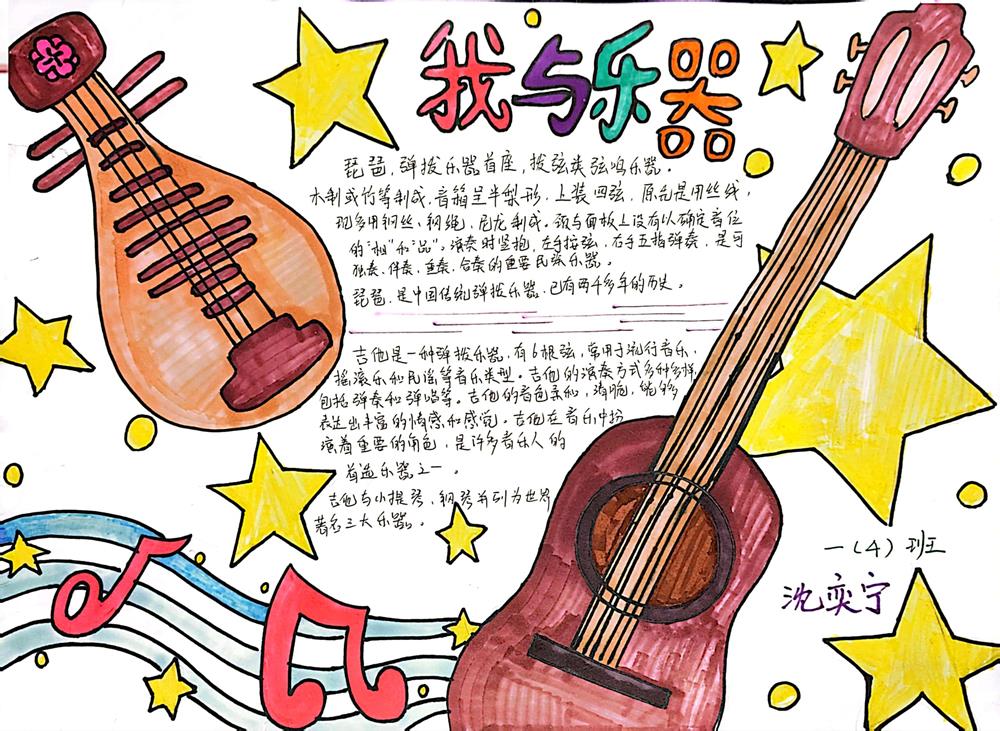 我与乐器
琵琶,弹拨乐器首座,拨弦类弦鸣乐器。
木制或竹等制成,音箱呈半梨形,上装四弦,原先是用丝线,
现多用钢丝、钢绳、尼龙制成。颈与面板上设有以确定音位
的"相"和"品"。演奏时竖抱,左手按弦,右手五指弹奏,是可
独奏、伴奏、重奏、合奏的重要民族乐器。
琵琶,是中国传统弹拨乐器,已有两千多年的历史。
吉他是一种弹拨乐器,有6根弦,常用于流行音乐,
摇滚乐和民谣等音乐类型。吉他的演奏方式多种多样,
包括弹奏和弹唱等。吉他的音色柔和,清脆,能够
表达出丰富的情感和感觉。吉他在音乐中扮
演着重要的角色,是许多音乐人的
首选乐器之一。
吉他与小提琴、钢琴并列为世界
著名三大乐器。
一(4)班
沈奕宁